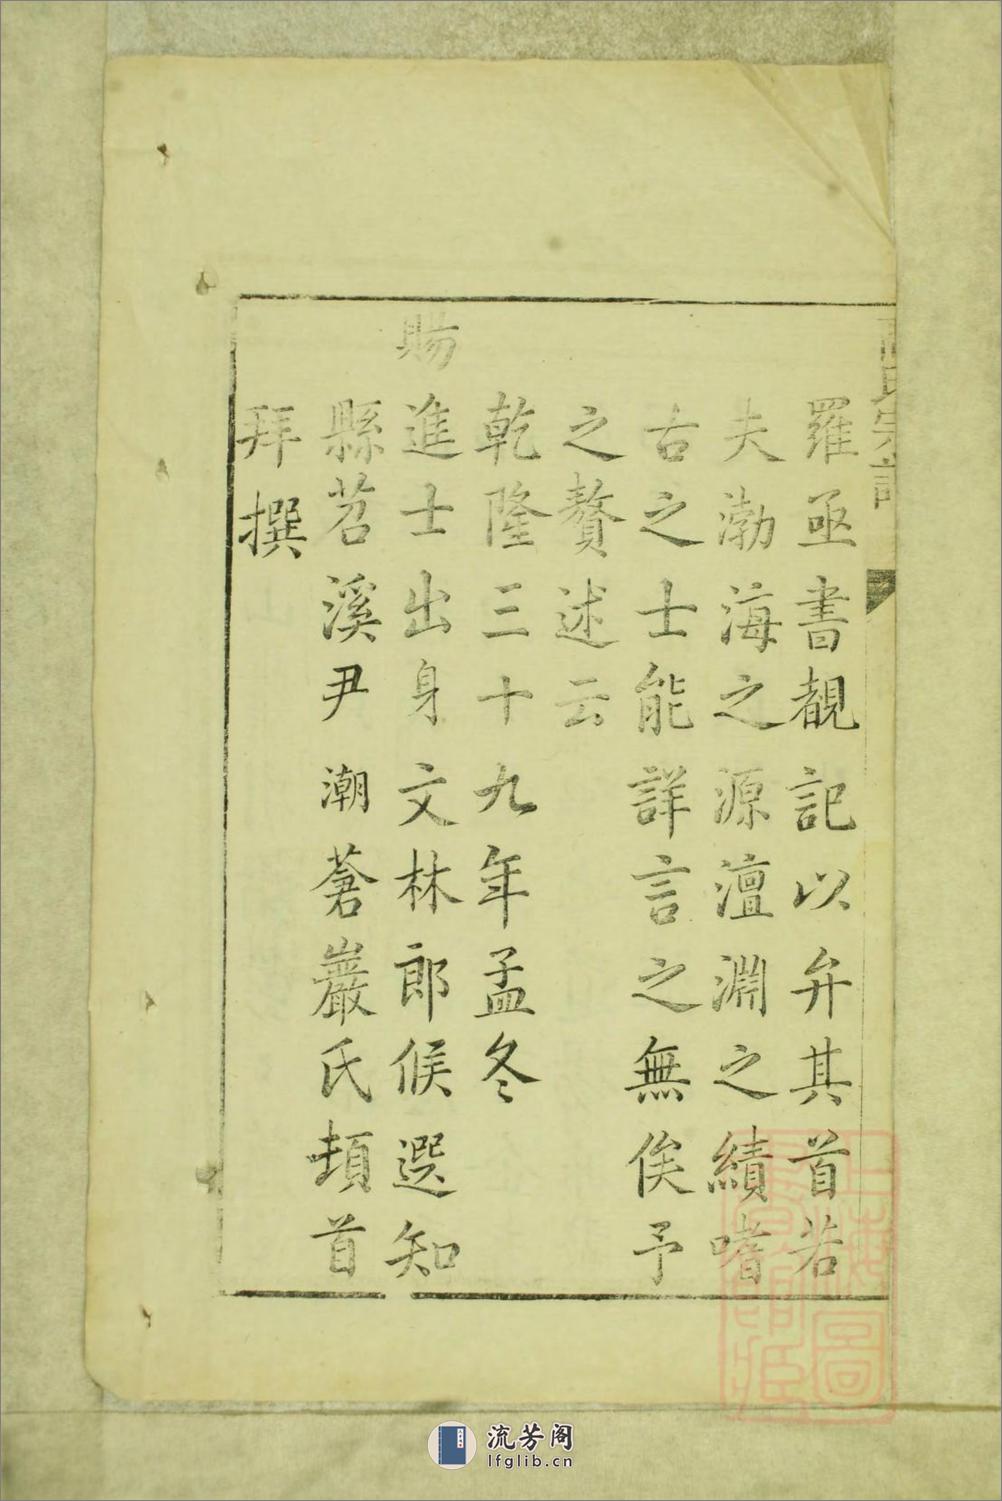 羅亟書覩記以弁其首若
夫渤海之源澶淵之績嗜
古之士能詳言之無俟予
之贅述云
乾隆三十九年孟冬
賜進士出身文林郎候選知
縣苕溪尹潮蒼巖氏頓首
拜撰
氏宗譜
上海圖
流芳阁
lfglib.cn